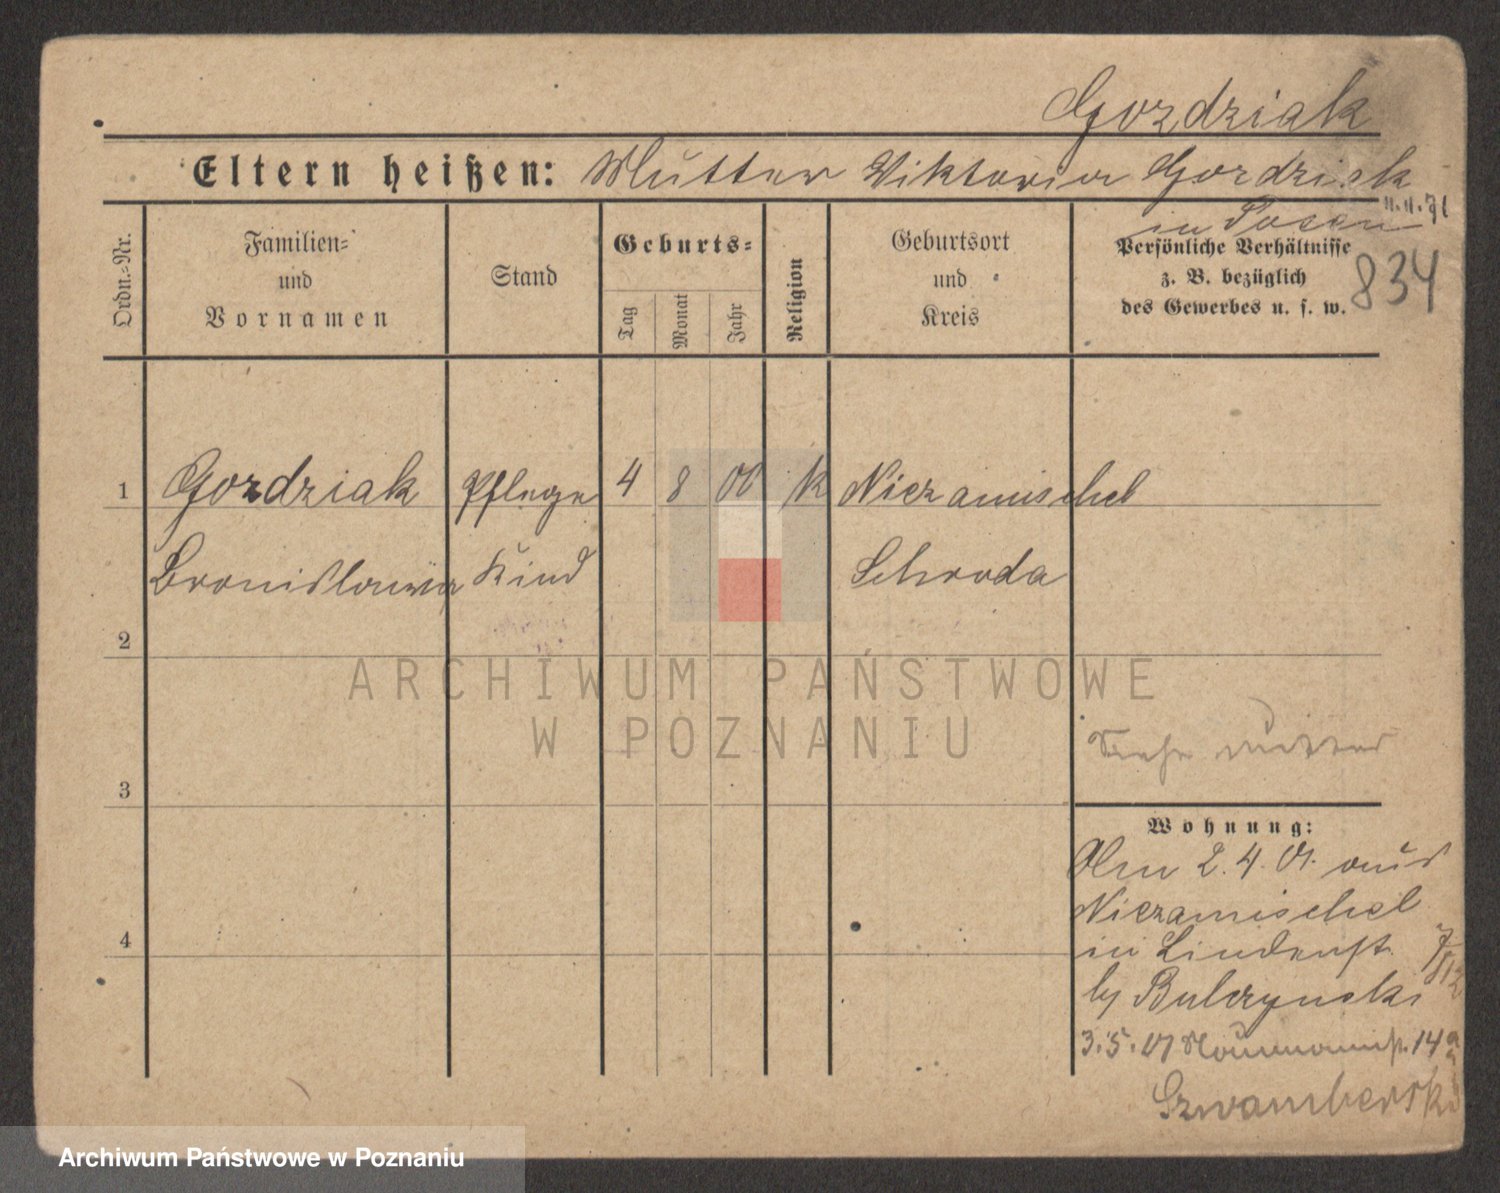 Gozdziak
Eltern heißen: Mutter Viktoria Gozdziak
in Posen 11.11.71
834
Ordn.-Nr.
Familien-
und
Vornamen
Stand
Geburts-
Tag
Monat
Jahr
Religion
Geburtsort
und
Kreis
Persönliche Verhältnisse
z. B. bezüglich
des Gewerbes u. s. w.
1 Gozdziak Pflege 4 8 00 K Niezamischel
Bronislawa Kind Schroda
2
ARCHIWUM PAŃSTWOWE
W POZNANIU
Siehe Mutter
3
Wohnung:
Am 2.4.01. aus
Niezamischel
4
in Lindenst. 7/
by Bulczynski 12
3.5.01 Naumannst. 14
Szwamberski
Archiwum Państwowe w Poznaniu